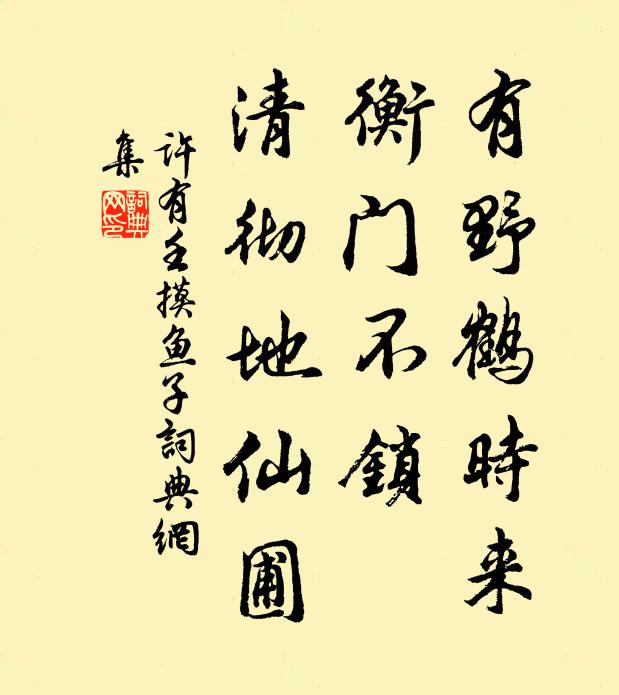 有野鹤時来
衡门不鎖
清彻地仙圃
许有壬摸鱼子詞典網
集
詞典网印